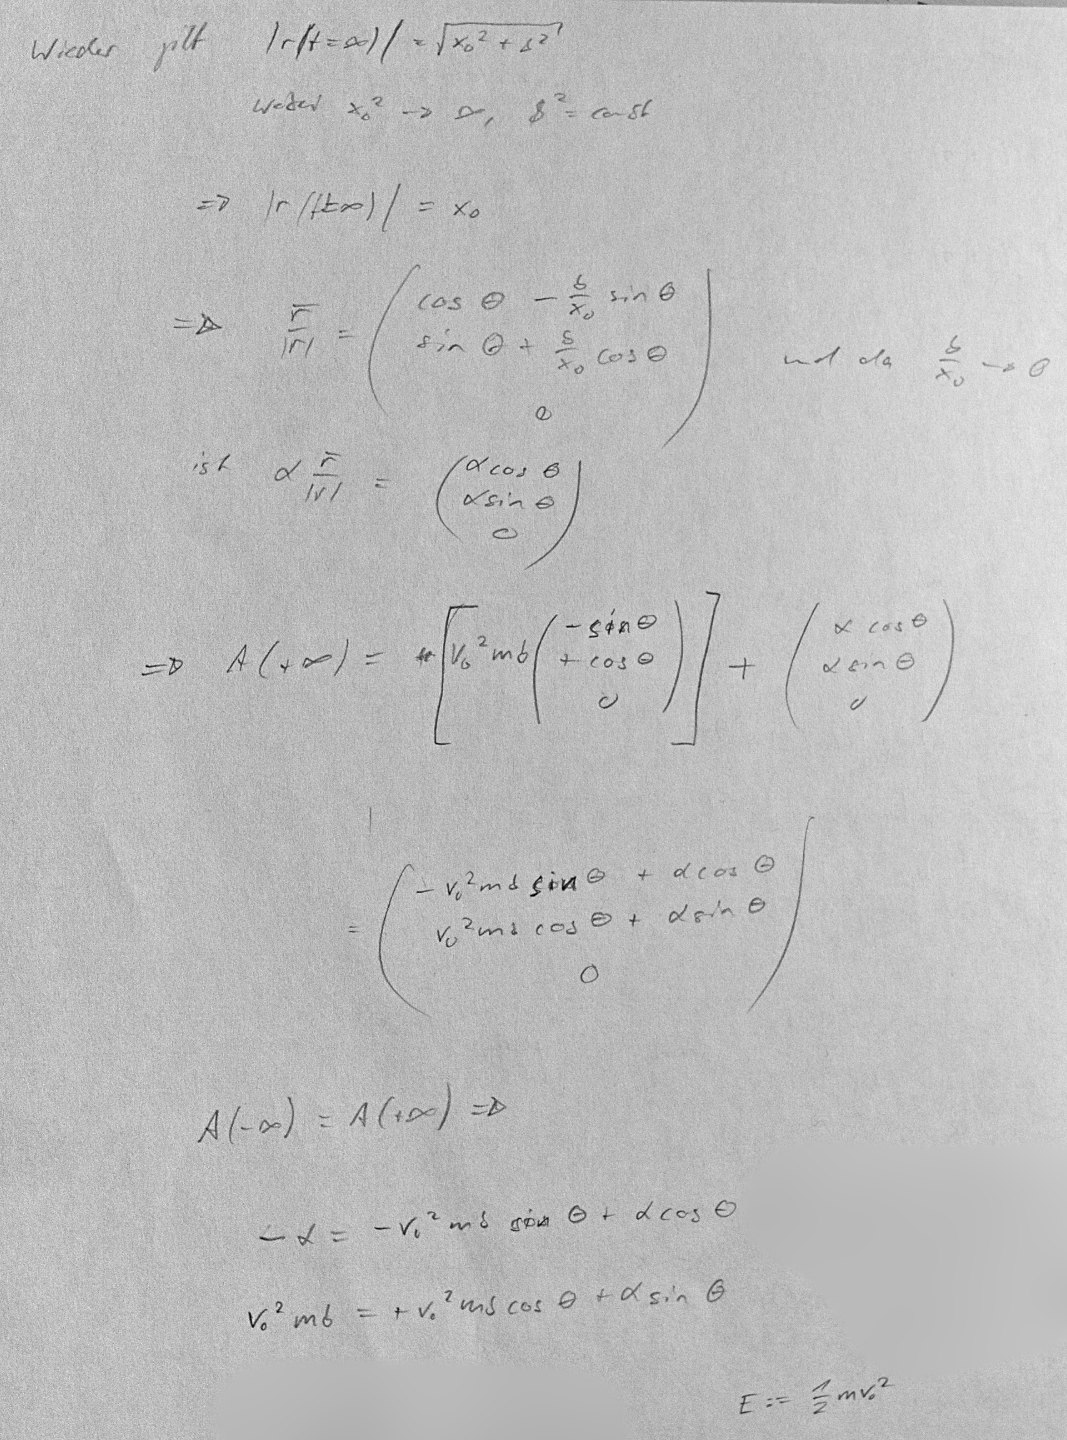 Wieder gilt |r(t=∞)| = √(x₀² + b²)
wobei x₀² → ∞, b² = const
⇒ |r(t=∞)| = x₀
⇒ r̄/|r| = ( cos θ − b/x₀ sin θ
sin θ + b/x₀ cos θ
0 ) und da b/x₀ → 0
ist α r̄/|r| = ( α cos θ
α sin θ
0 )
⇒ A(+∞) = [ v₀² m b ( − sin θ
+ cos θ
0 ) ] + ( α cos θ
α sin θ
0 )
= ( − v₀² m b sin θ + α cos θ
v₀² m b cos θ + α sin θ
0 )
A(−∞) = A(+∞) ⇒
− α = − v₀² m b sin θ + α cos θ
v₀² m b = + v₀² m b cos θ + α sin θ
E := ½ m v₀²